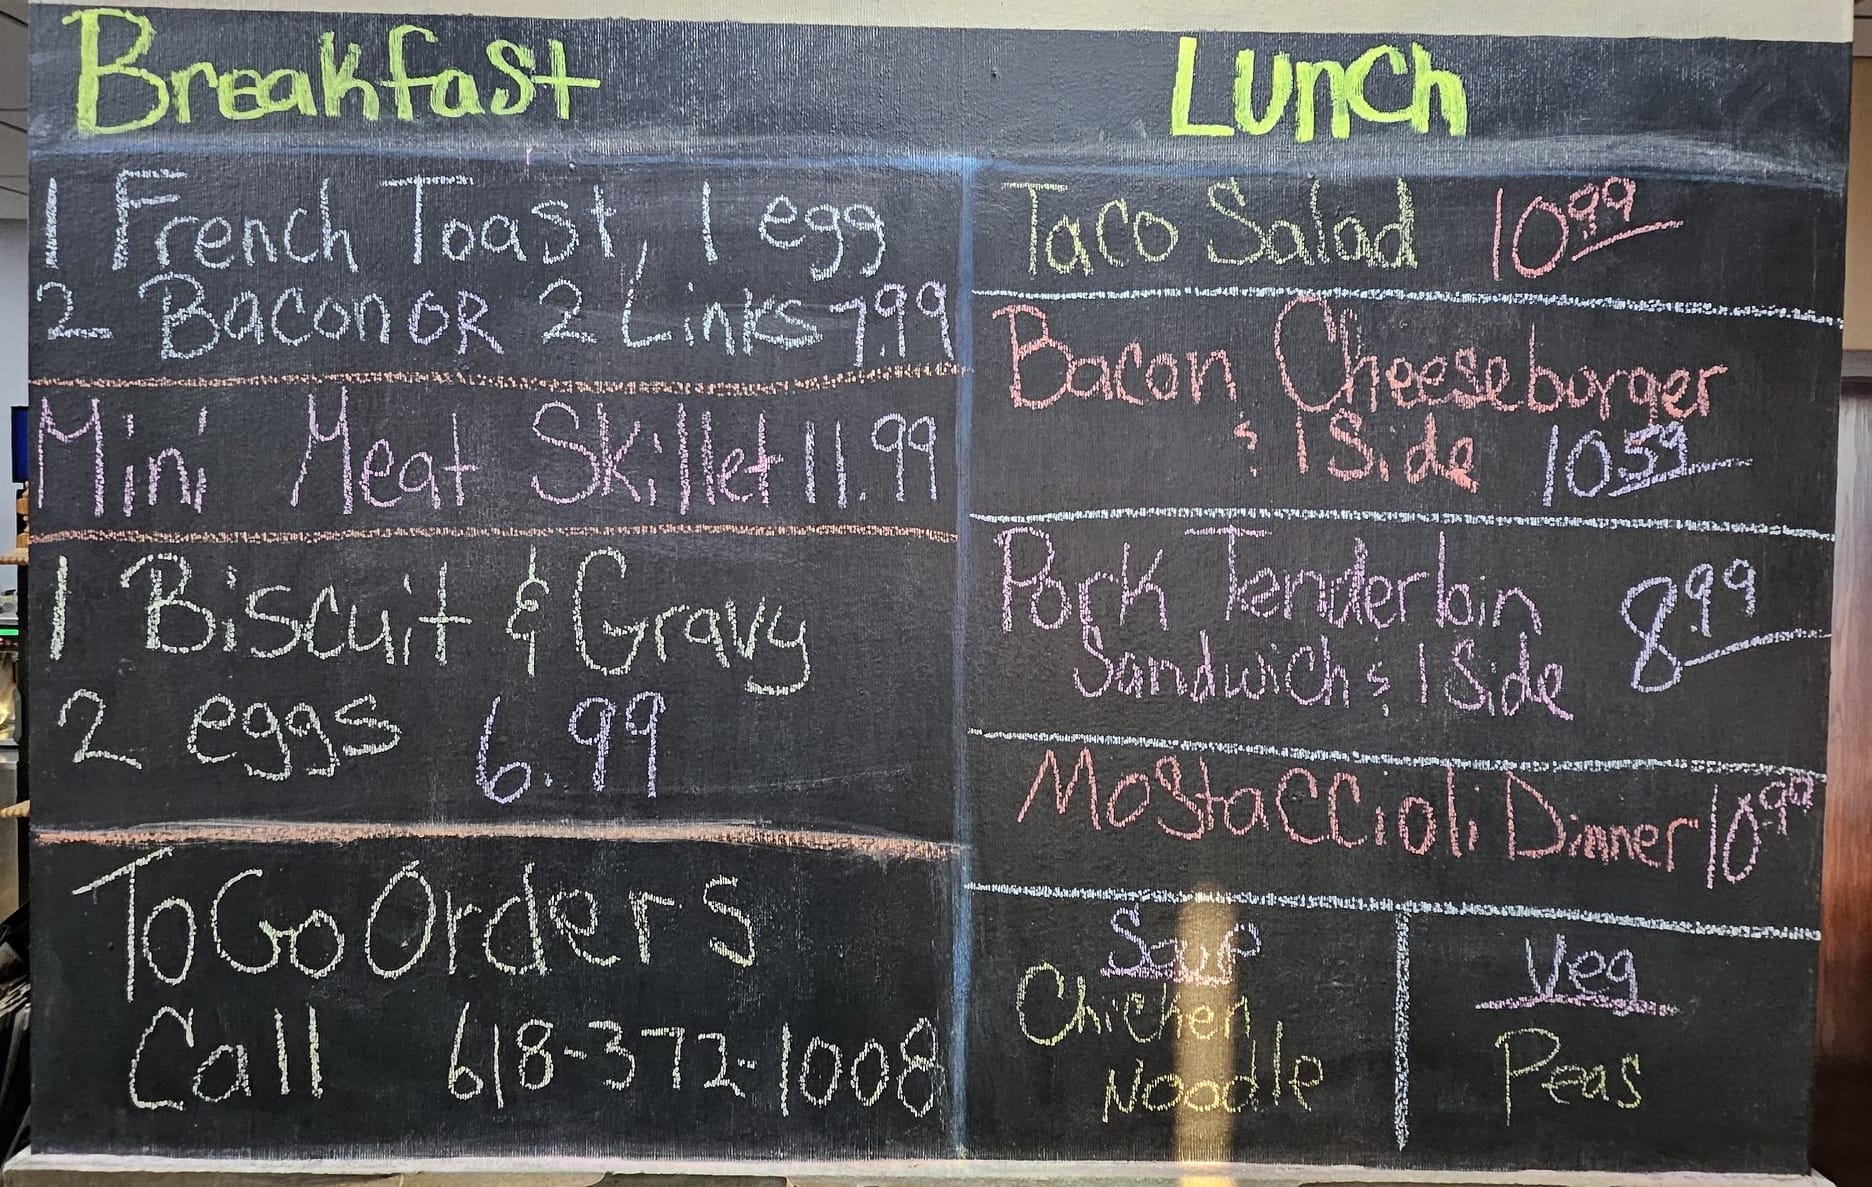 Breakfast
1 French Toast, 1 egg
2 Bacon OR 2 Links 7.99
Mini Meat Skillet 11.99
1 Biscuit & Gravy
2 eggs 6.99
To Go Orders
Call 618-372-1008
Lunch
Taco Salad 10.99
Bacon Cheeseborger
& 1 Side 10.59
Pork Tenderloin
Sandwich & 1 Side 8.99
Mostaccioli Dinner 10.99
Soup
Chicken
Noodle
Veg
Peas